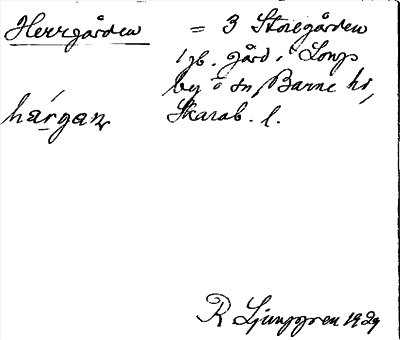 Herrgården = 3 Storegården
1 gb. gård i Longs
by o sn, Barne hd,
härgan Skarab. l.
R Ljunggren 1929